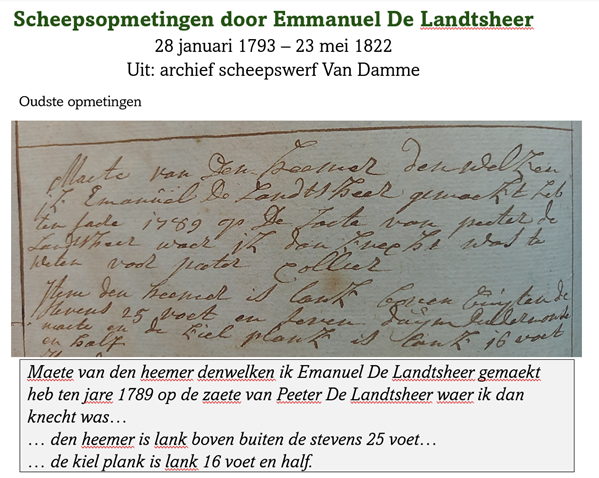 Scheepsopmetingen door Emmanuel De Landtsheer
28 januari 1793 – 23 mei 1822
Uit: archief scheepswerf Van Damme
Oudste opmetingen
Maete van den heemer denwelken
ik Emanuel De Landtsheer gemaekt heb
ten jare 1789 op De Zaete van peeter de
Landtsheer waer ik dan knecht was te
weten voor pieter Collier
Item den heemer is lank boven buyten de
stevens 25 voet en seven duym
maete en de kiel plank is lank 16 voet
en half
Maete van den heemer denwelken ik Emanuel De Landtsheer gemaekt
heb ten jare 1789 op de zaete van Peeter De Landtsheer waer ik dan
knecht was…
… den heemer is lank boven buiten de stevens 25 voet…
… de kiel plank is lank 16 voet en half.